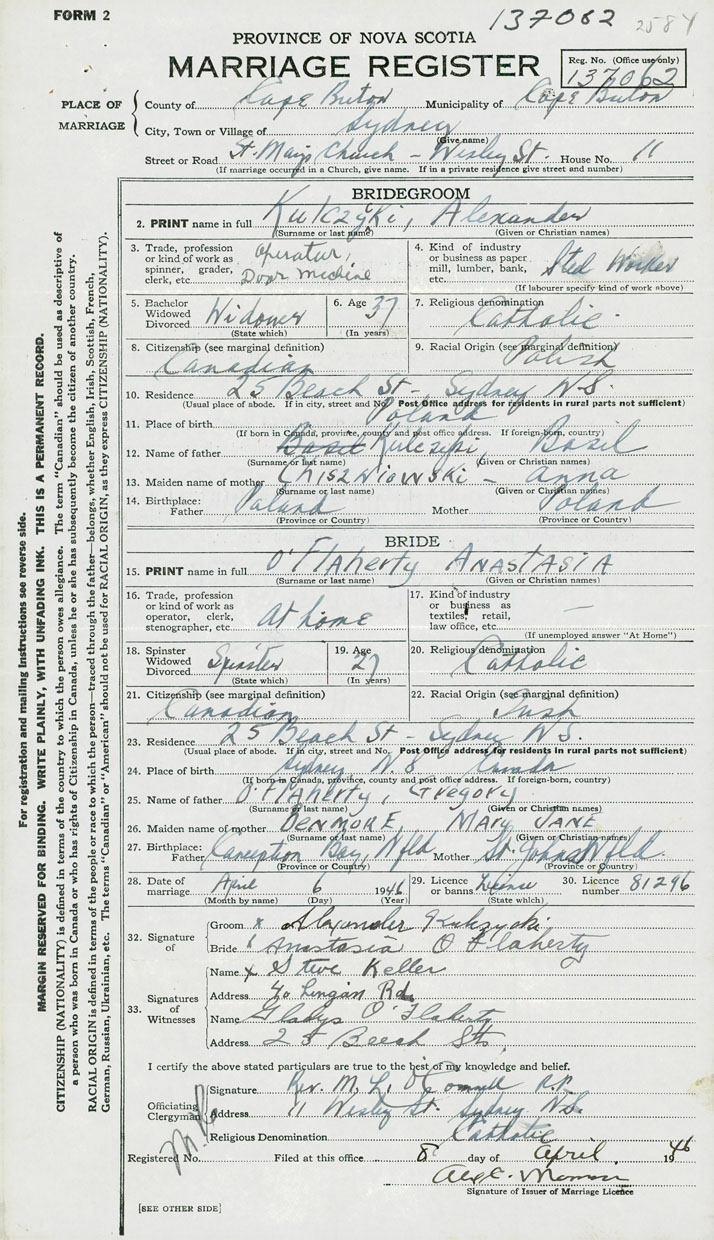 FORM 2
137062 2584
PROVINCE OF NOVA SCOTIA
MARRIAGE REGISTER
Reg. No. (Office use only)
137062
PLACE OF MARRIAGE
County of Cape Breton Municipality of Cape Breton
City, Town or Village of Sydney
(Give name)
Street or Road St. Mary's Church - Wesley St. House No. 11
(If marriage occurred in a Church, give name. If in a private residence give street and number)
BRIDEGROOM
2. PRINT name in full Kulczycki, Alexander
(Surname or last name) (Given or Christian names)
3. Trade, profession or kind of work as spinner, grader, clerk, etc. Operator, Door Machine
4. Kind of industry or business as paper mill, lumber, bank, etc. Steel Worker
(If labourer specify kind of work above)
5. Bachelor Widowed Divorced Widower
(State which)
6. Age 37
(In years)
7. Religious denomination Catholic
8. Citizenship (see marginal definition) Canadian
9. Racial Origin (see marginal definition) Polish
10. Residence 25 Beach St - Sydney N.S.
(Usual place of abode. If in city, street and No. Post Office address for residents in rural parts not sufficient)
11. Place of birth Poland
(If born in Canada, province, county and post office address. If foreign-born, country)
12. Name of father Basil Kulczycki, Basil
(Surname or last name) (Given or Christian names)
13. Maiden name of mother Chiszniowski - Anna
(Surname or last name) (Given or Christian names)
14. Birthplace: Father Poland Mother Poland
(Province or Country) (Province or Country)
BRIDE
15. PRINT name in full O'Flaherty ANASTASIA
(Surname or last name) (Given or Christian names)
16. Trade, profession or kind of work as operator, clerk, stenographer, etc. At home
17. Kind of industry or business as textiles, retail, law office, etc. —
(If unemployed answer "At Home")
18. Spinster Widowed Divorced Spinster
(State which)
19. Age 27
(In years)
20. Religious denomination Catholic
21. Citizenship (see marginal definition) Canadian
22. Racial Origin (see marginal definition) Irish
23. Residence 25 Beach St - Sydney N.S.
(Usual place of abode. If in city, street and No. Post Office address for residents in rural parts not sufficient)
24. Place of birth Sydney N.S. Canada
(If born in Canada, province, county and post office address. If foreign-born, country)
25. Name of father O'Flaherty, Gregory
(Surname or last name) (Given or Christian names)
26. Maiden name of mother DENMORE MARY JANE
(Surname or last name) (Given or Christian names)
27. Birthplace: Father Conception Bay, Nfld Mother St. Johns Nfld.
(Province or Country) (Province or Country)
28. Date of marriage April 6 1946
(Month by name) (Day) (Year)
29. Licence or banns Licence
(State which)
30. Licence number 81296
32. Signature of
Groom x Alexander Kulczycki
Bride Anastasia O'Flaherty
33. Signatures of Witnesses
Name x Steve Keller
Address 40 Lingan Rd.
Name Gladys O'Flaherty
Address 25 Beech Sts,
I certify the above stated particulars are true to the best of my knowledge and belief.
Officiating Clergyman
Signature Rev. M. L. O'Connell P.P.
Address 11 Wesley St. Sydney N.S.
Religious Denomination Catholic
Registered No. Filed at this office 8 day of April 1946
Signature of Issuer of Marriage Licence
[SEE OTHER SIDE]
For registration and mailing instructions see reverse side.
MARGIN RESERVED FOR BINDING. WRITE PLAINLY, WITH UNFADING INK. THIS IS A PERMANENT RECORD.
CITIZENSHIP (NATIONALITY) is defined in terms of the country to which the person owes allegiance. The term "Canadian" should be used as descriptive of
a person who was born in Canada or who has rights of Citizenship in Canada, unless he or she has subsequently become the citizen of another country.
RACIAL ORIGIN is defined in terms of the people or race to which the person—traced through the father—belongs, whether English, Irish, Scottish, French,
German, Russian, Ukrainian, etc. The terms "Canadian" or "American" should not be used for RACIAL ORIGIN, as they express CITIZENSHIP (NATIONALITY).